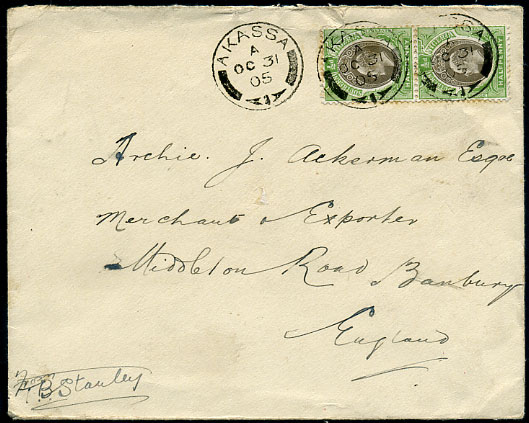 AKASSA
A
OC 31
05
AKASSA
A
OC 31
05
A
05
Archie. J. Ackerman Esqre
Merchant & Exporter
Middleton Road Banbury
England
From
B Stanley